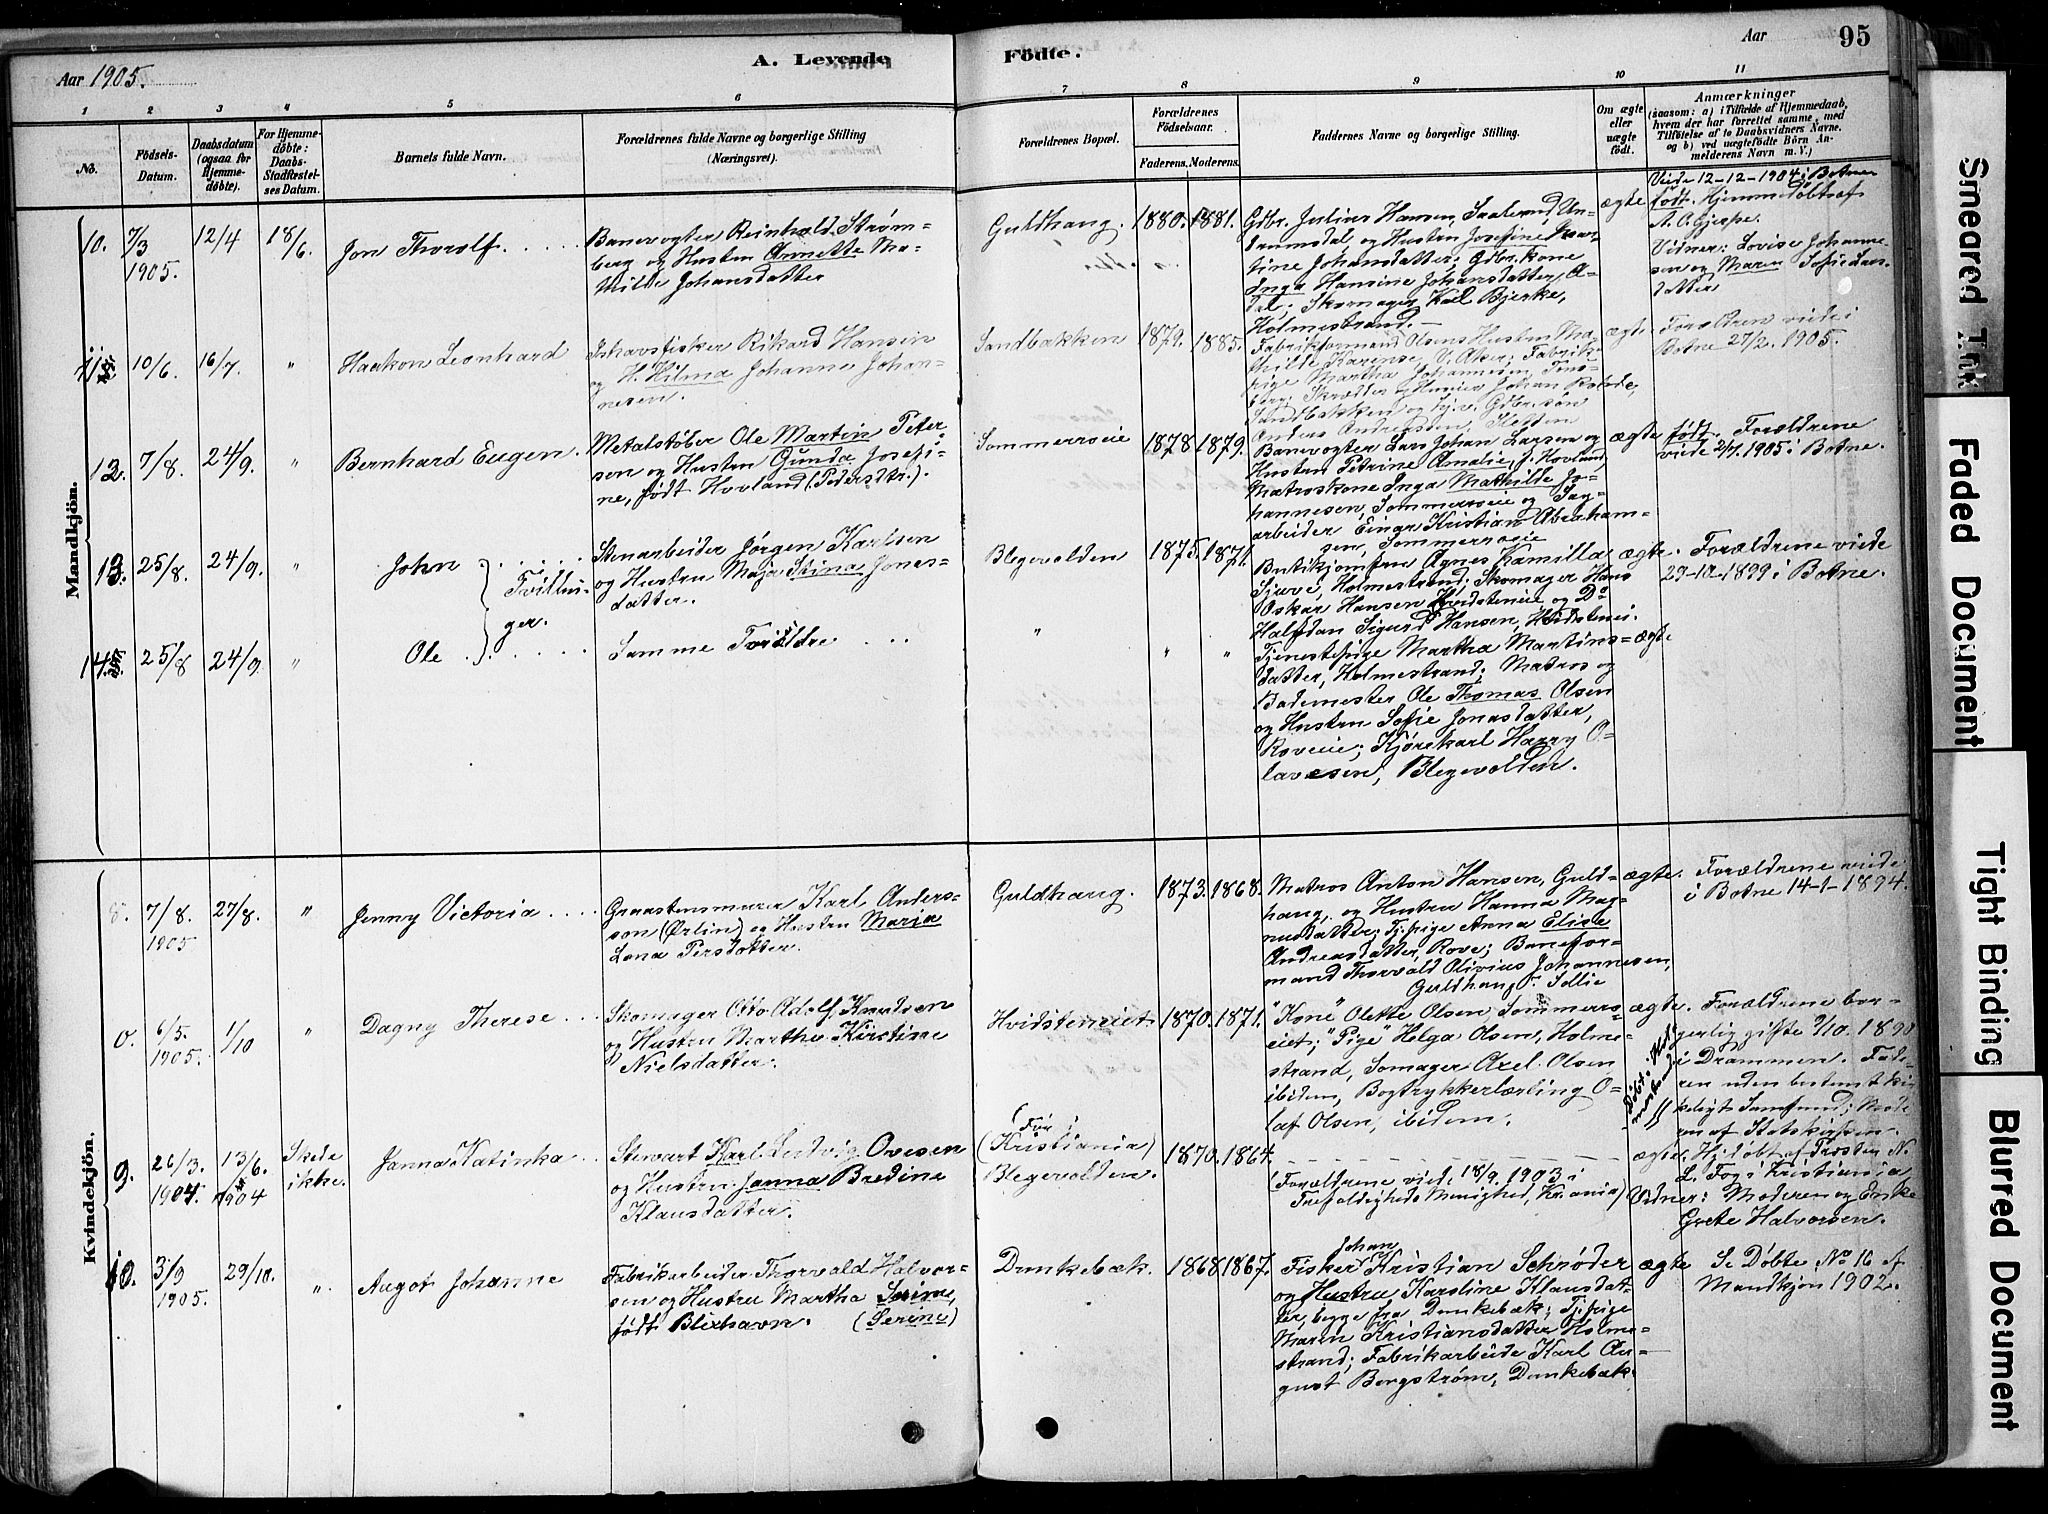 Aar 1905.
A. Levende
Födte.
Aar
95
1
2
3
4
5
6
7
8
9
10
11
No.
Födsels-
Datum.
Daabsdatum
(ogsaa for
Hjemme-
døbte).
For Hjemme-
døbte:
Daabs-
Stadfæstel-
ses Datum.
Barnets fulde Navn.
Forældrenes fulde Navne og borgerlige Stilling
(Næringsvei).
Forældrenes Bopæl.
Forældrenes
Fødselsaar.
Faderens. Moderens.
Faddernes Navne og borgerlige Stilling.
Om ægte
eller
uægte
født.
Anmærkninger
(saasom: a) i Tilfælde af Hjemmedaab,
hvem der har forrettet samme, med
Tilføielse af to Daabsvidners Navne.
og b) ved uægtefødte Børn An-
melderens Navn m. V.)
Mandkjön.
10.
7/3
1905.
12/4
18/6.
Jon Thorolf
Banevogter Reinhold Strøm-
berg og Hustru Annette Ma-
thilde Johansdatter
Guldhaug.
1880.
1881.
Gbr. Julius Hansen,
og Hustru Josefine Mar-
tine Johansdatter; Gdbr.kone
Inga Hansine Johansdatter,
Skomager Karl Bjerke,
Holmestrand.
ægte
Viede 12-12-1904 i Botne
født. Hjemmedøbt af
A. O. Gjerpe.
Vidner: Lovise Johanne-
sen og Maren Sofie Lars-
datter
11
10/6.
16/7.
"
Haakon Leonhard
Ishavsfisker Rikard Hansen
og H. Hilma Johanne Johan-
nesen.
Sandbakken
1879.
1885.
Fabrikformand Olsens Hustru Ma-
thilde
Martha Johannesen,
Skrædder Johan
Sandbakken og Gdbr.søn
Anders Andreassen, Holden
ægte
Forældren viede i
Botne 27/2. 1905.
12.
7/8.
24/9.
"
Bernhard Eugen.
Metalstøber Ole Martin Peter-
sen og Hustru Gunda Josefi-
ne, født Hovland (Pedersdtr.).
Sommerroeie
1878
1879.
Banevogter Lars Johan Larsen og
Hustru Petrine Amalie, J. Hovland,
Matroskone Inga Mathilde Jo-
hannesen, Sommerroeie og Sag-
arbeider Einar Kristian Abraham-
sen, Sommerroeie
ægte
født. Forældrene
viede 2/7. 1905 i Botne.
13.
25/8.
24/9.
"
John
Tvillin-
ger.
Stenarbeider Jørgen Karlsen
og Hustru Maja Stina Jonas-
datter.
Blegevolden
1875.
1871.
Butikjomfru Agnes Kamilla
Holmestrand; Skomager Hans
Oskar Hansen Hvidsteneie og Do
Halfdan Sigurd Hansen, Hvidsteneie.
ægte.
Forældrene viede
29-10-1899 i Botne.
14
25/8
24/9.
"
Ole
Samme Forældre
"
"
"
Tjenestepige Martha Martins-
datter, Holmestrand; Matros og
Bademester Ole Thomas Olsen
og Hustru Sofie Jonasdatter,
Roveeie; Kjørekarl Harry O-
lavesen, Blegevolden.
ægte
Kvindekjön.
8.
7/8.
1905
27/8.
"
Jenny Victoria
Graastensmurer Karl Anders-
son (Ørlin) og Hustru Maria
Lena Persdatter.
Guldhaug.
1873.
1868.
Matros Anton Hansen, Guld-
haug, og Hustru Hanna Mag-
nusdatter; Tj.pige Anna Elise
Andreasdatter, Rove; Banefor-
mand Thorvald Olivius Johannesen,
Guldhaug
ægte.
Forældrene viede
i Botne 14-1-1894.
0.
6/5.
1905.
1/10
"
Dagny Therese
Skomager Otto Adolf Knudsen
og Hustru Marthe Kirstine
Nielsdatter.
Hvidsteneiet
1870.
1871.
"Kone" Olette Olsen, Sommerro-
eiet; "Pige" Helga Olsen, Holme-
strand, Somager Axel Olsen
ibidem, Bogtrykkerlærling O-
laf Olsen, ibidem.
ægte.
Døbt i Hol-
mestrand
Forældrene bor-
gerlig gifte 9/10. 1890
i Drammen. Fade-
ren uden bestemt kir-
keligt Samfund; Mode
ren af Statskirken.
9.
26/3.
1904.
13/6.
1904
Skede
ikke.
Janna Katinka
Stewart Karl Ludvig Ovesen
og Hustru Janna Bredine
Klausdatter.
(Før i
(Kristiania)
Blegevolden.
1870.
1864.
(Forældrene viede 18/9. 1903 i
Trefoldigheds Menighed, Kr.ania)
ægte.
Hj.døbt af Presten N.
L. Fog i Kristiania
Vidner: Moderen og Enke
Grete Halvorsen.
10.
3/9
1905.
29/10.
".
Aagot Johanne
Fabrikarbeider Thorvald Halvor-
sen og Hustru Martha Serine,
født Blixhavn. (Serine)
Dunkebæk.
1868
1867.
Johan
Fisker Kristian Schrøder
og Hustru Karoline Klausdat-
ter, begge fra Dunkebæk; Tj.pige
Maren Kristiansdatter Holme-
strand; Fabrikarbeide Karl Au-
gust Bergstrøm, Dunkebæk.
ægte
Se Døbte No 16 af
Mandkjøn 1902.
Smeared Ink
Faded Document
Tight Binding
Blurred Document